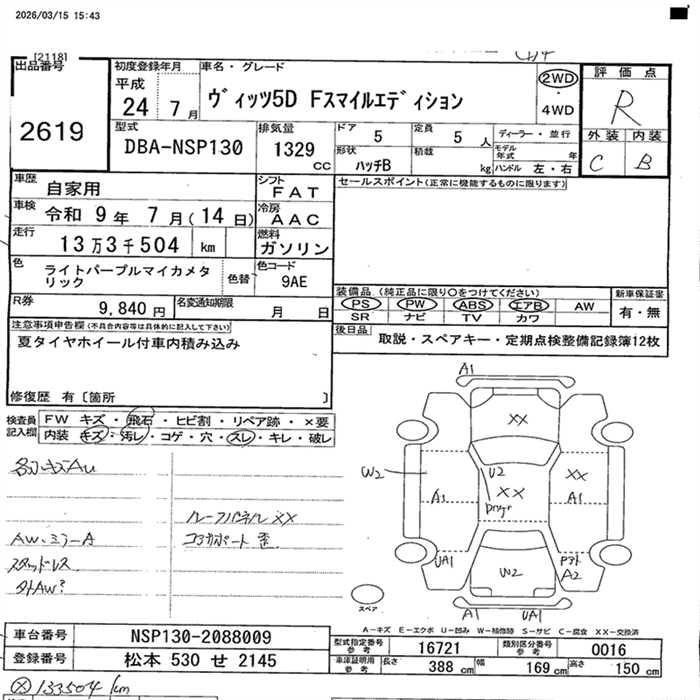 2026/03/15 15:43
[2118]
出品番号
2619
初度登録年月
平成
24 7月
車名・グレード
ヴィッツ5D Fスマイルエディション
2WD
・
4WD
評価点
R
外装 内装
C B
型式
DBA-NSP130
排気量
1329
CC
ドア
5
定員
5 人
形状
ハッチB
積載
kg
ディーラー・並行
モデル年式 年
ハンドル 左・右
車歴
自家用
シフト
FAT
セールスポイント(正常に機能するものに限ります)
車検
令和 9年 7月(14日)
冷房
AAC
走行
13万3千504 km
燃料
ガソリン
色
ライトパープルマイカメタリック
色替
色コード
9AE
R券
9,840円
名変通知期限
月 日
装備品(純正品に限り○をつけてください)
PS PW ABS エアB AW
SR ナビ TV カワ
新車保証書
有・無
後日品
取説・スペアキー・定期点検整備記録簿12枚
注意事項申告欄(不具合内容等は具体的に記入して下さい)
夏タイヤホイール付車内積み込み
修復歴 有〔箇所 〕
検査員記入欄
FW キズ・飛石・ヒビ割・リペア跡・×要
内装 キズ・汚レ・コゲ・穴・スレ・キレ・破レ
AW、ミラーA
スタッドレス
外AW?
ルーフパネルXX
コアサポート歪
A1
XX
W2
U2
XX
XX
A1
A1
UA1
W2
A2
A1
UA1
スペア
A-キズ E-エクボ U-凹み W-補修跡 S-サビ C-腐食 XX-交換済
車台番号
NSP130-2088009
登録番号
松本 530 せ 2145
型式指定番号
参考
16721
類別区分番号
参考
0016
車庫証明用
参考
長さ
388 cm
幅
169 cm
高さ
150 cm
133504 km